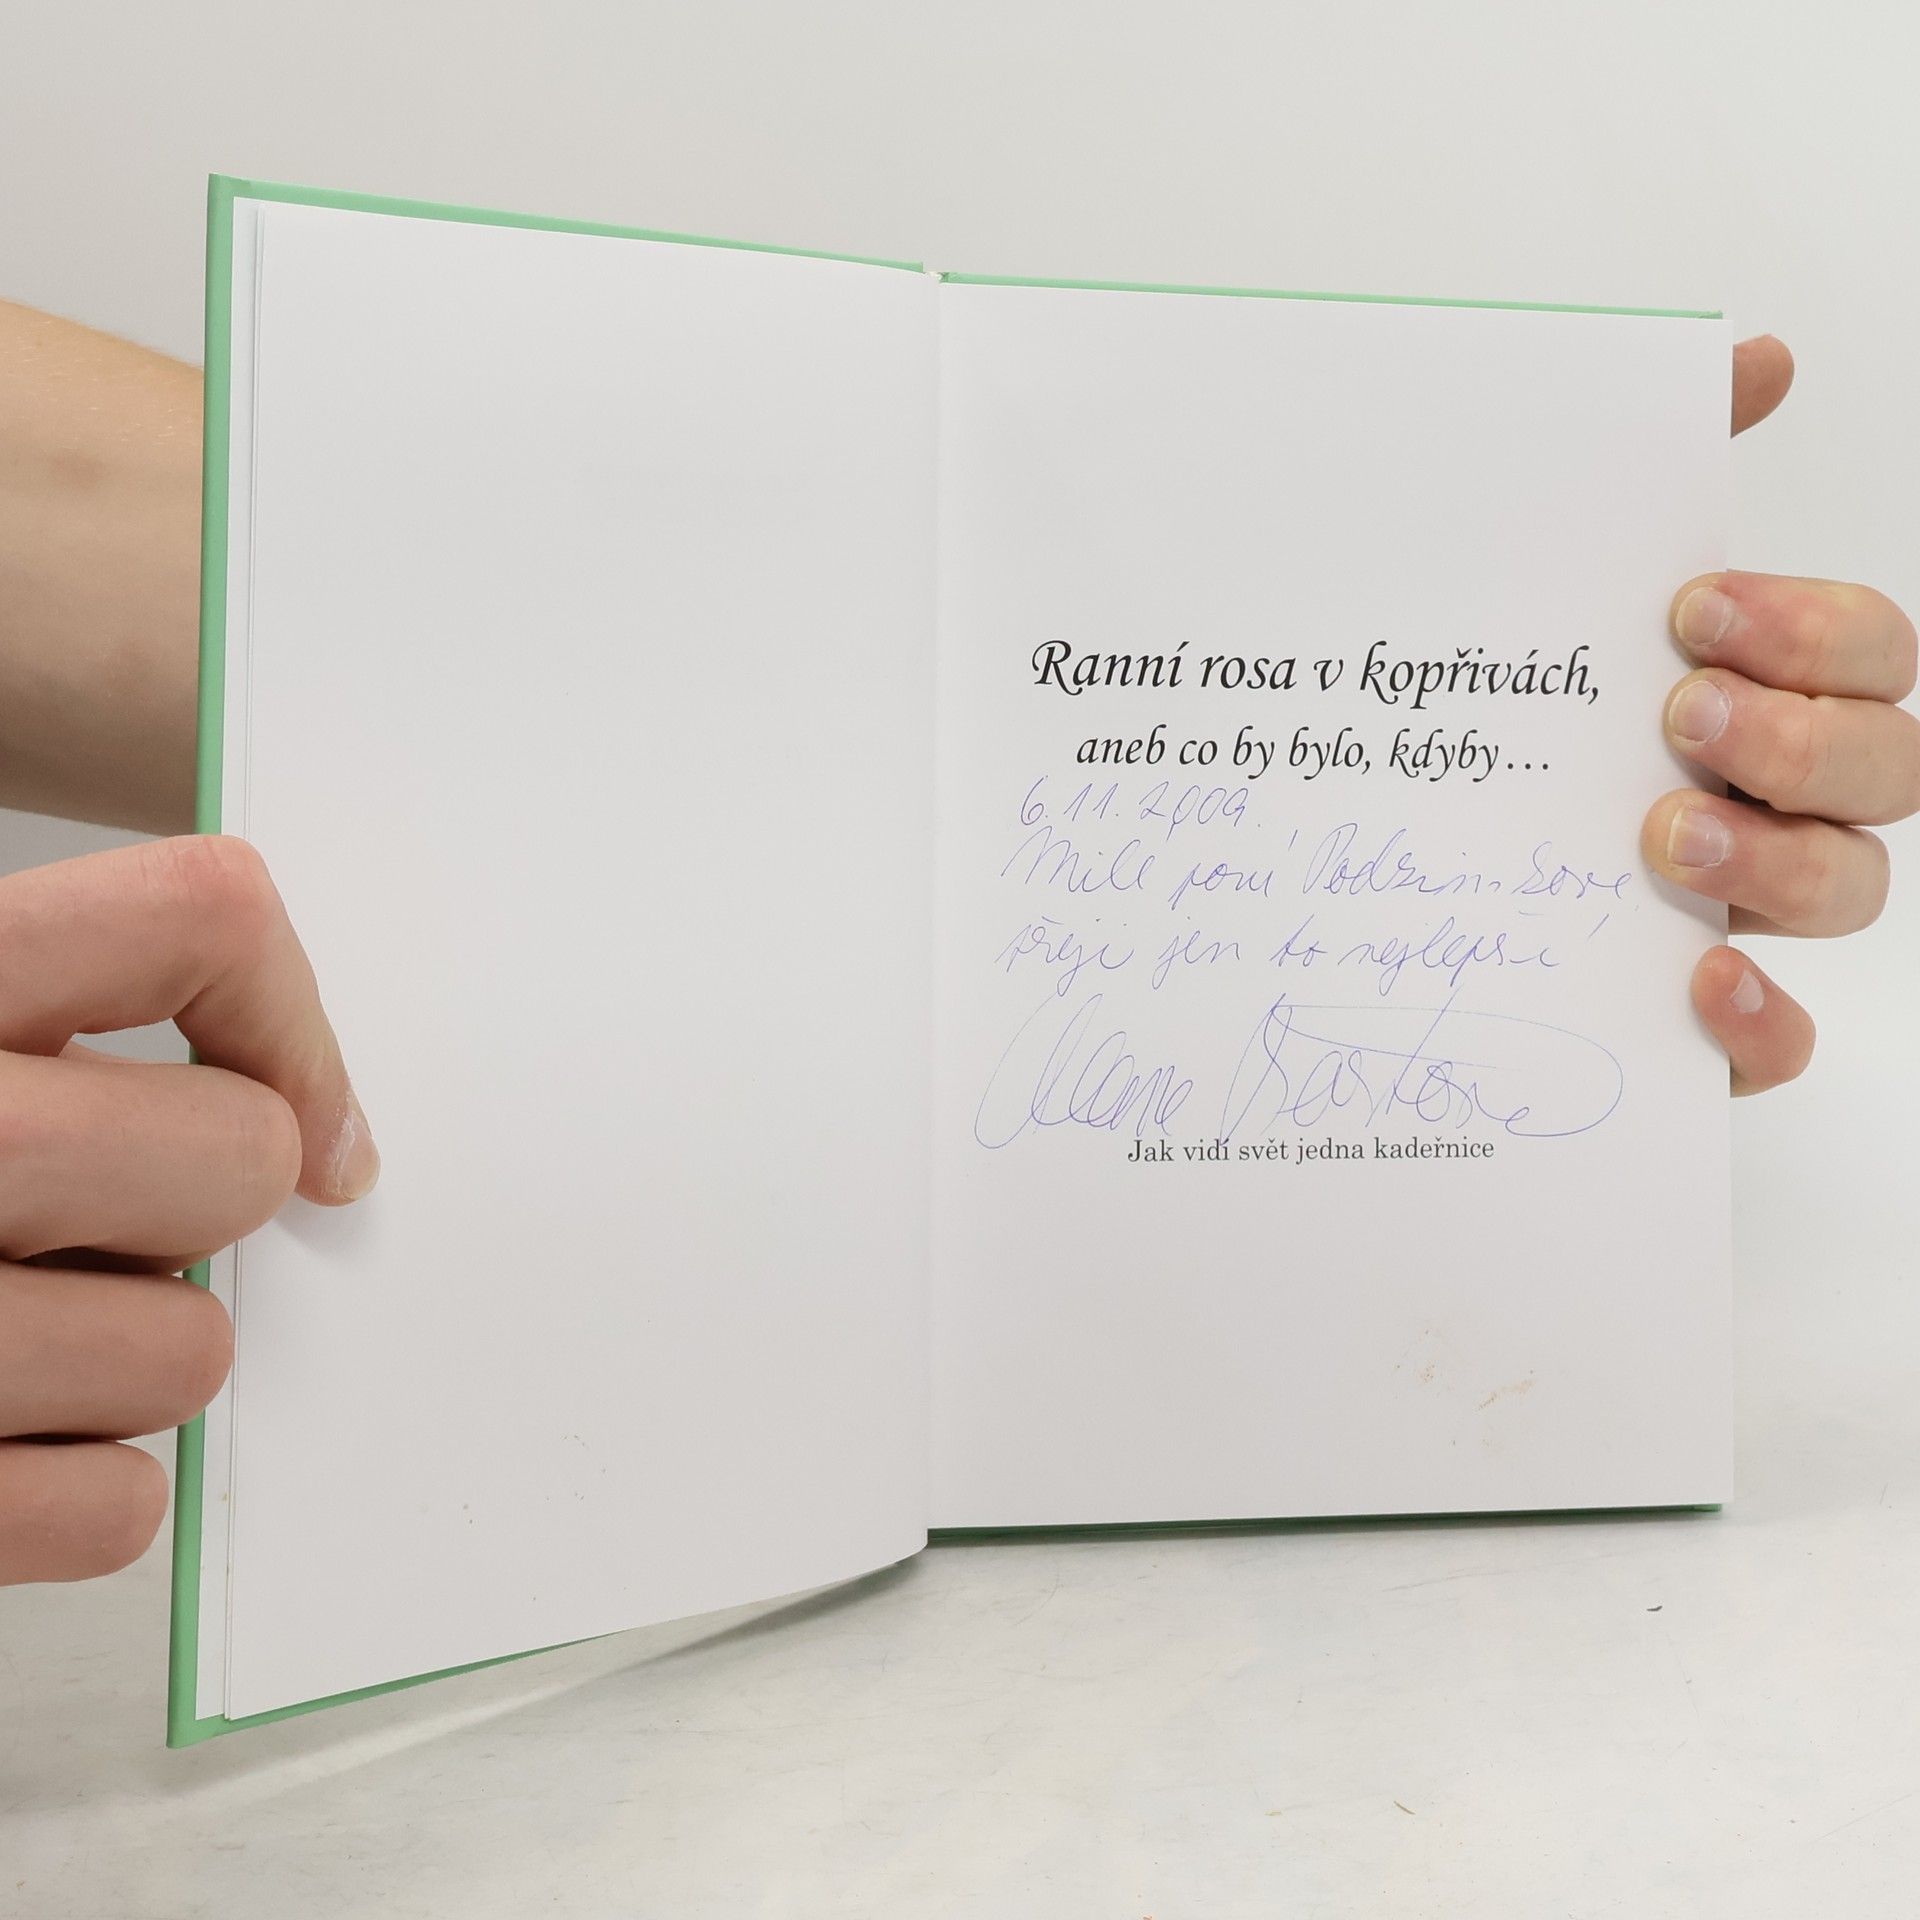 Ranní rosa v kopřivách,
aneb co by bylo, kdyby...
6.11.2009.
Milé paní Podzimkové
přeji jen to nejlepší
Jak vidí svět jedna kadeřnice